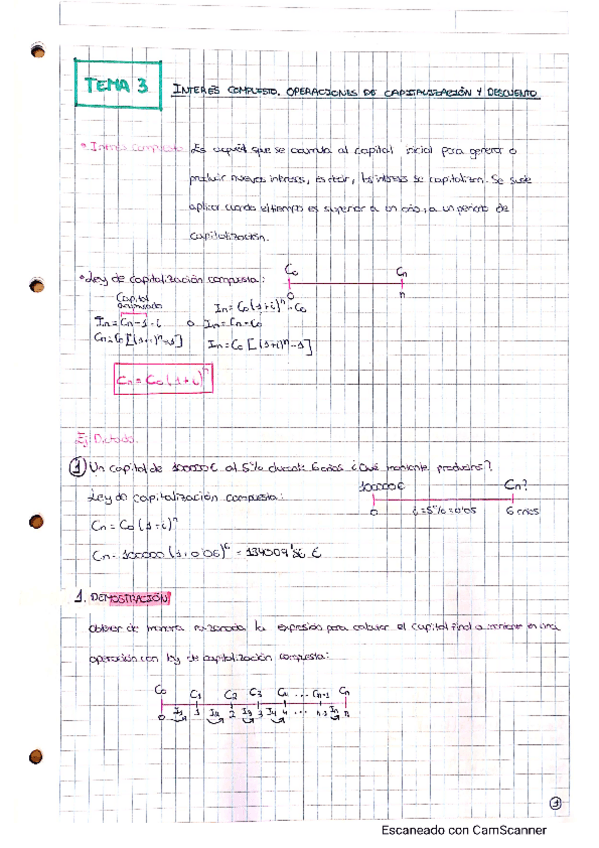 TEMA 3
INTERÉS COMPUESTO. OPERACIONES DE CAPITALIZACIÓN Y DESCUENTO
• Interés Compuesto: Es aquel que se acumula al capital inicial para generar o
producir nuevos intereses, es decir, los intereses se capitalizan. Se suele
aplicar cuando el tiempo es superior a un año, a un periodo de
capitalización.
• Ley de capitalización compuesta:
Co Cn
0 n
Capital
In = Co(1+i)^n - Co
In = Cn-1 · i o In = Cn - Co
In = Co[(1+i)^n - 1]
Cn = Co(1+i)^n
Ej: Dictado.
① Un capital de 100000€ al 5% durante 6 años ¿Qué montante produciría?
100000€ Cn?
Ley de capitalización compuesta:
0 i=5%=0'05 6 años
Cn = Co(1+i)^n
Cn = 100000(1+0'05)^6 = 134009'56 €
1. DEMOSTRACIÓN
Obtener de manera razonada la expresión para calcular el capital final a obtener en una
operación con ley de capitalización compuesta:
Co C1 C2 C3 C4 ... Cn-1 Cn
0 I1 1 I2 2 I3 3 I4 4 ... n-1 In n
①
Escaneado con CamScanner